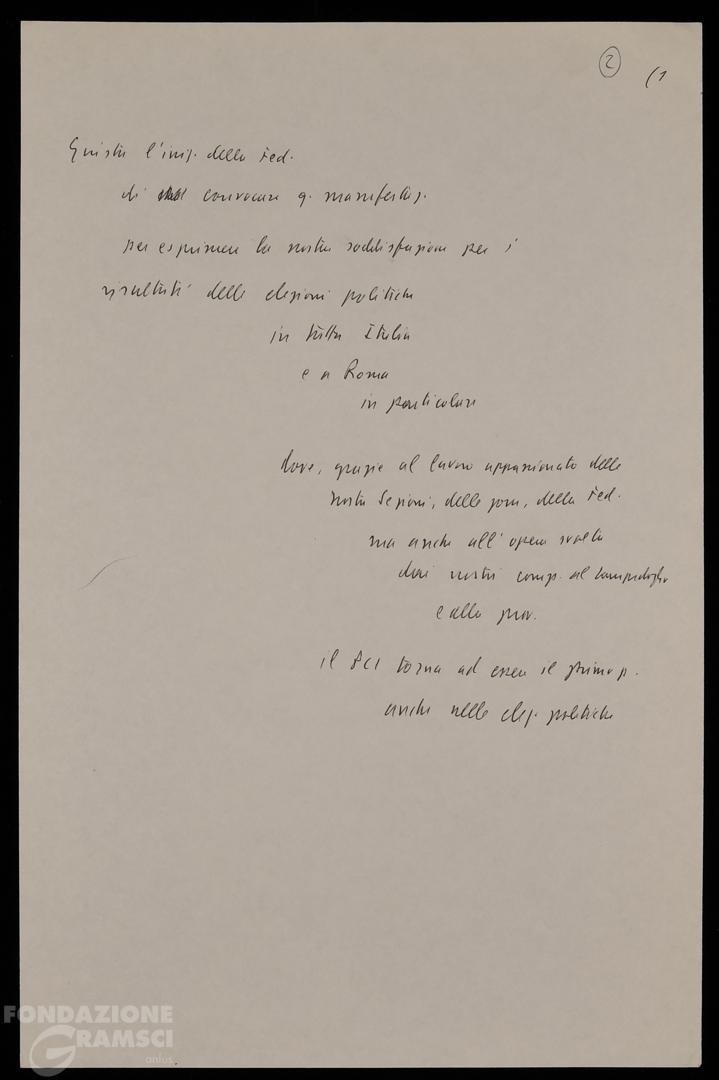 2
(1
Giusta l'iniz. della Fed.
di convocare q. manifestaz.
per esprimere la nostra soddisfazione per i
risultati delle elezioni politiche
in tutta Italia
e a Roma
in particolare
dove, grazie al lavoro appassionato delle
nostre Sezioni, delle zone, della Fed.
ma anche all'opera svolta
dai nostri comp. al Campidoglio
e alla prov.
il PCI torna ad essere il primo p.
anche nelle elez. politiche
FONDAZIONE
GRAMSCI
onlus